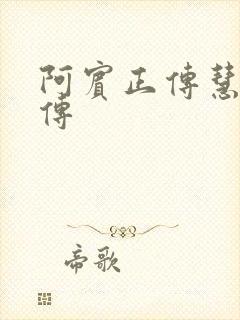 阿賓正傳慧
傳
帝歌